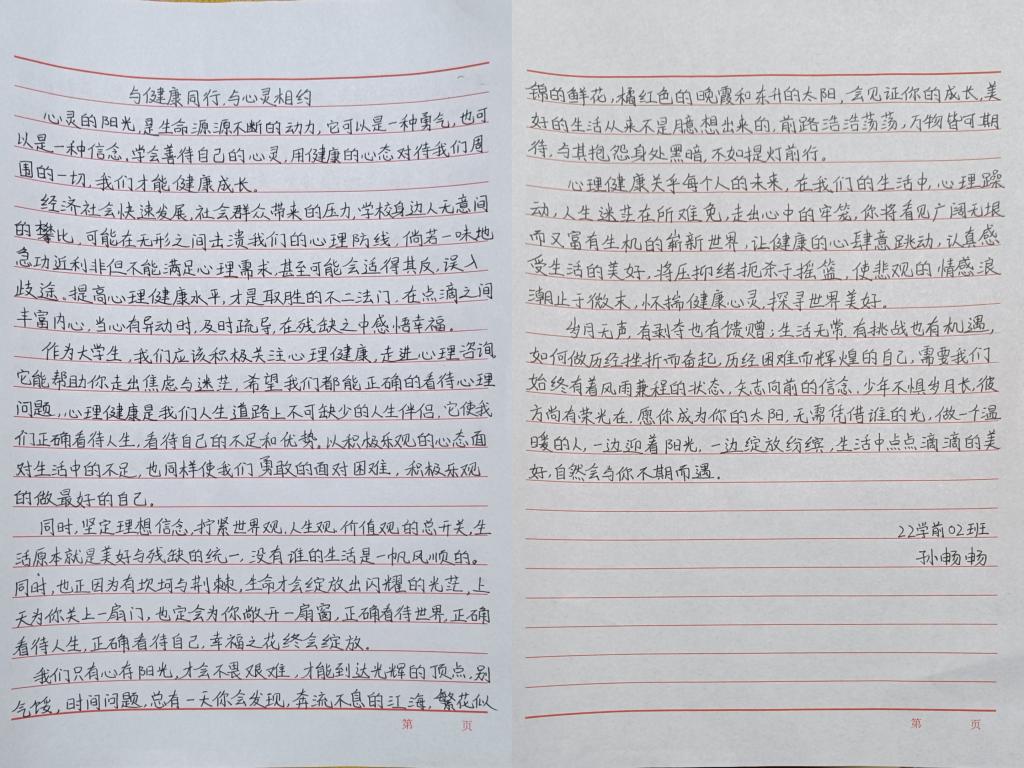 与健康同行,与心灵相约
心灵的阳光,是生命源源不断的动力,它可以是一种勇气,也可
以是一种信念,学会善待自己的心灵,用健康的心态对待我们周
围的一切,我们才能健康成长。
经济社会快速发展,社会群众带来的压力,学校身边人无意间
的攀比,可能在无形之间击溃我们的心理防线,倘若一味地
急功近利非但不能满足心理需求,甚至可能会适得其反,误入
歧途。提高心理健康水平,才是取胜的不二法门,在点滴之间
丰富内心,当心有异动时,及时疏导,在残缺之中感悟幸福。
作为大学生,我们应该积极关注心理健康,走进心理咨询
它能帮助你走出焦虑与迷茫,希望我们都能正确的看待心理
问题,心理健康是我们人生道路上不可缺少的人生伴侣,它使我
们正确看待人生,看待自己的不足和优势,以积极乐观的心态面
对生活中的不足,也同样使我们勇敢的面对困难,积极乐观
的做最好的自己.
同时,坚定理想信念,拧紧世界观,人生观,价值观的总开关,生
活原本就是美好与残缺的统一,没有谁的生活是一帆风顺的。
同时,也正因为有坎坷与荆棘,生命才会绽放出闪耀的光茫,上
天为你关上一扇门,也定会为你敞开一扇窗,正确看待世界,正确
看待人生,正确看待自己,幸福之花终会绽放.
我们只有心存阳光,才会不畏艰难,才能到达光辉的顶点,别
气馁,时间问题,总有一天你会发现,奔流不息的江海,繁花似
第 页
锦的鲜花,橘红色的晚霞和东升的太阳,会见证你的成长,美
好的生活从来不是臆想出来的,前路浩浩荡荡,万物皆可期
待,与其抱怨身处黑暗,不如提灯前行.
心理健康关乎每个人的未来,在我们的生活中,心理躁
动,人生迷茫在所难免,走出心中的牢笼,你将看见广阔无垠
而又富有生机的崭新世界,让健康的心肆意跳动,认真感
受生活的美好,将压抑绪扼杀于摇篮,使悲观的情感浪
潮止于微末,怀揣健康心灵,探寻世界美好.
岁月无声,有剥夺也有馈赠;生活无常,有挑战也有机遇,
如何做历经挫折而奋起,历经困难而辉煌的自己,需要我们
始终有着风雨兼程的状态,矢志向前的信念,少年不惧岁月长,彼
方尚有荣光在,愿你成为你的太阳,无需凭借谁的光,做一个温
暖的人,一边迎着阳光,一边绽放纷缤,生活中点点滴滴的美
好,自然会与你不期而遇.
22学前02班
孙畅畅
第 页